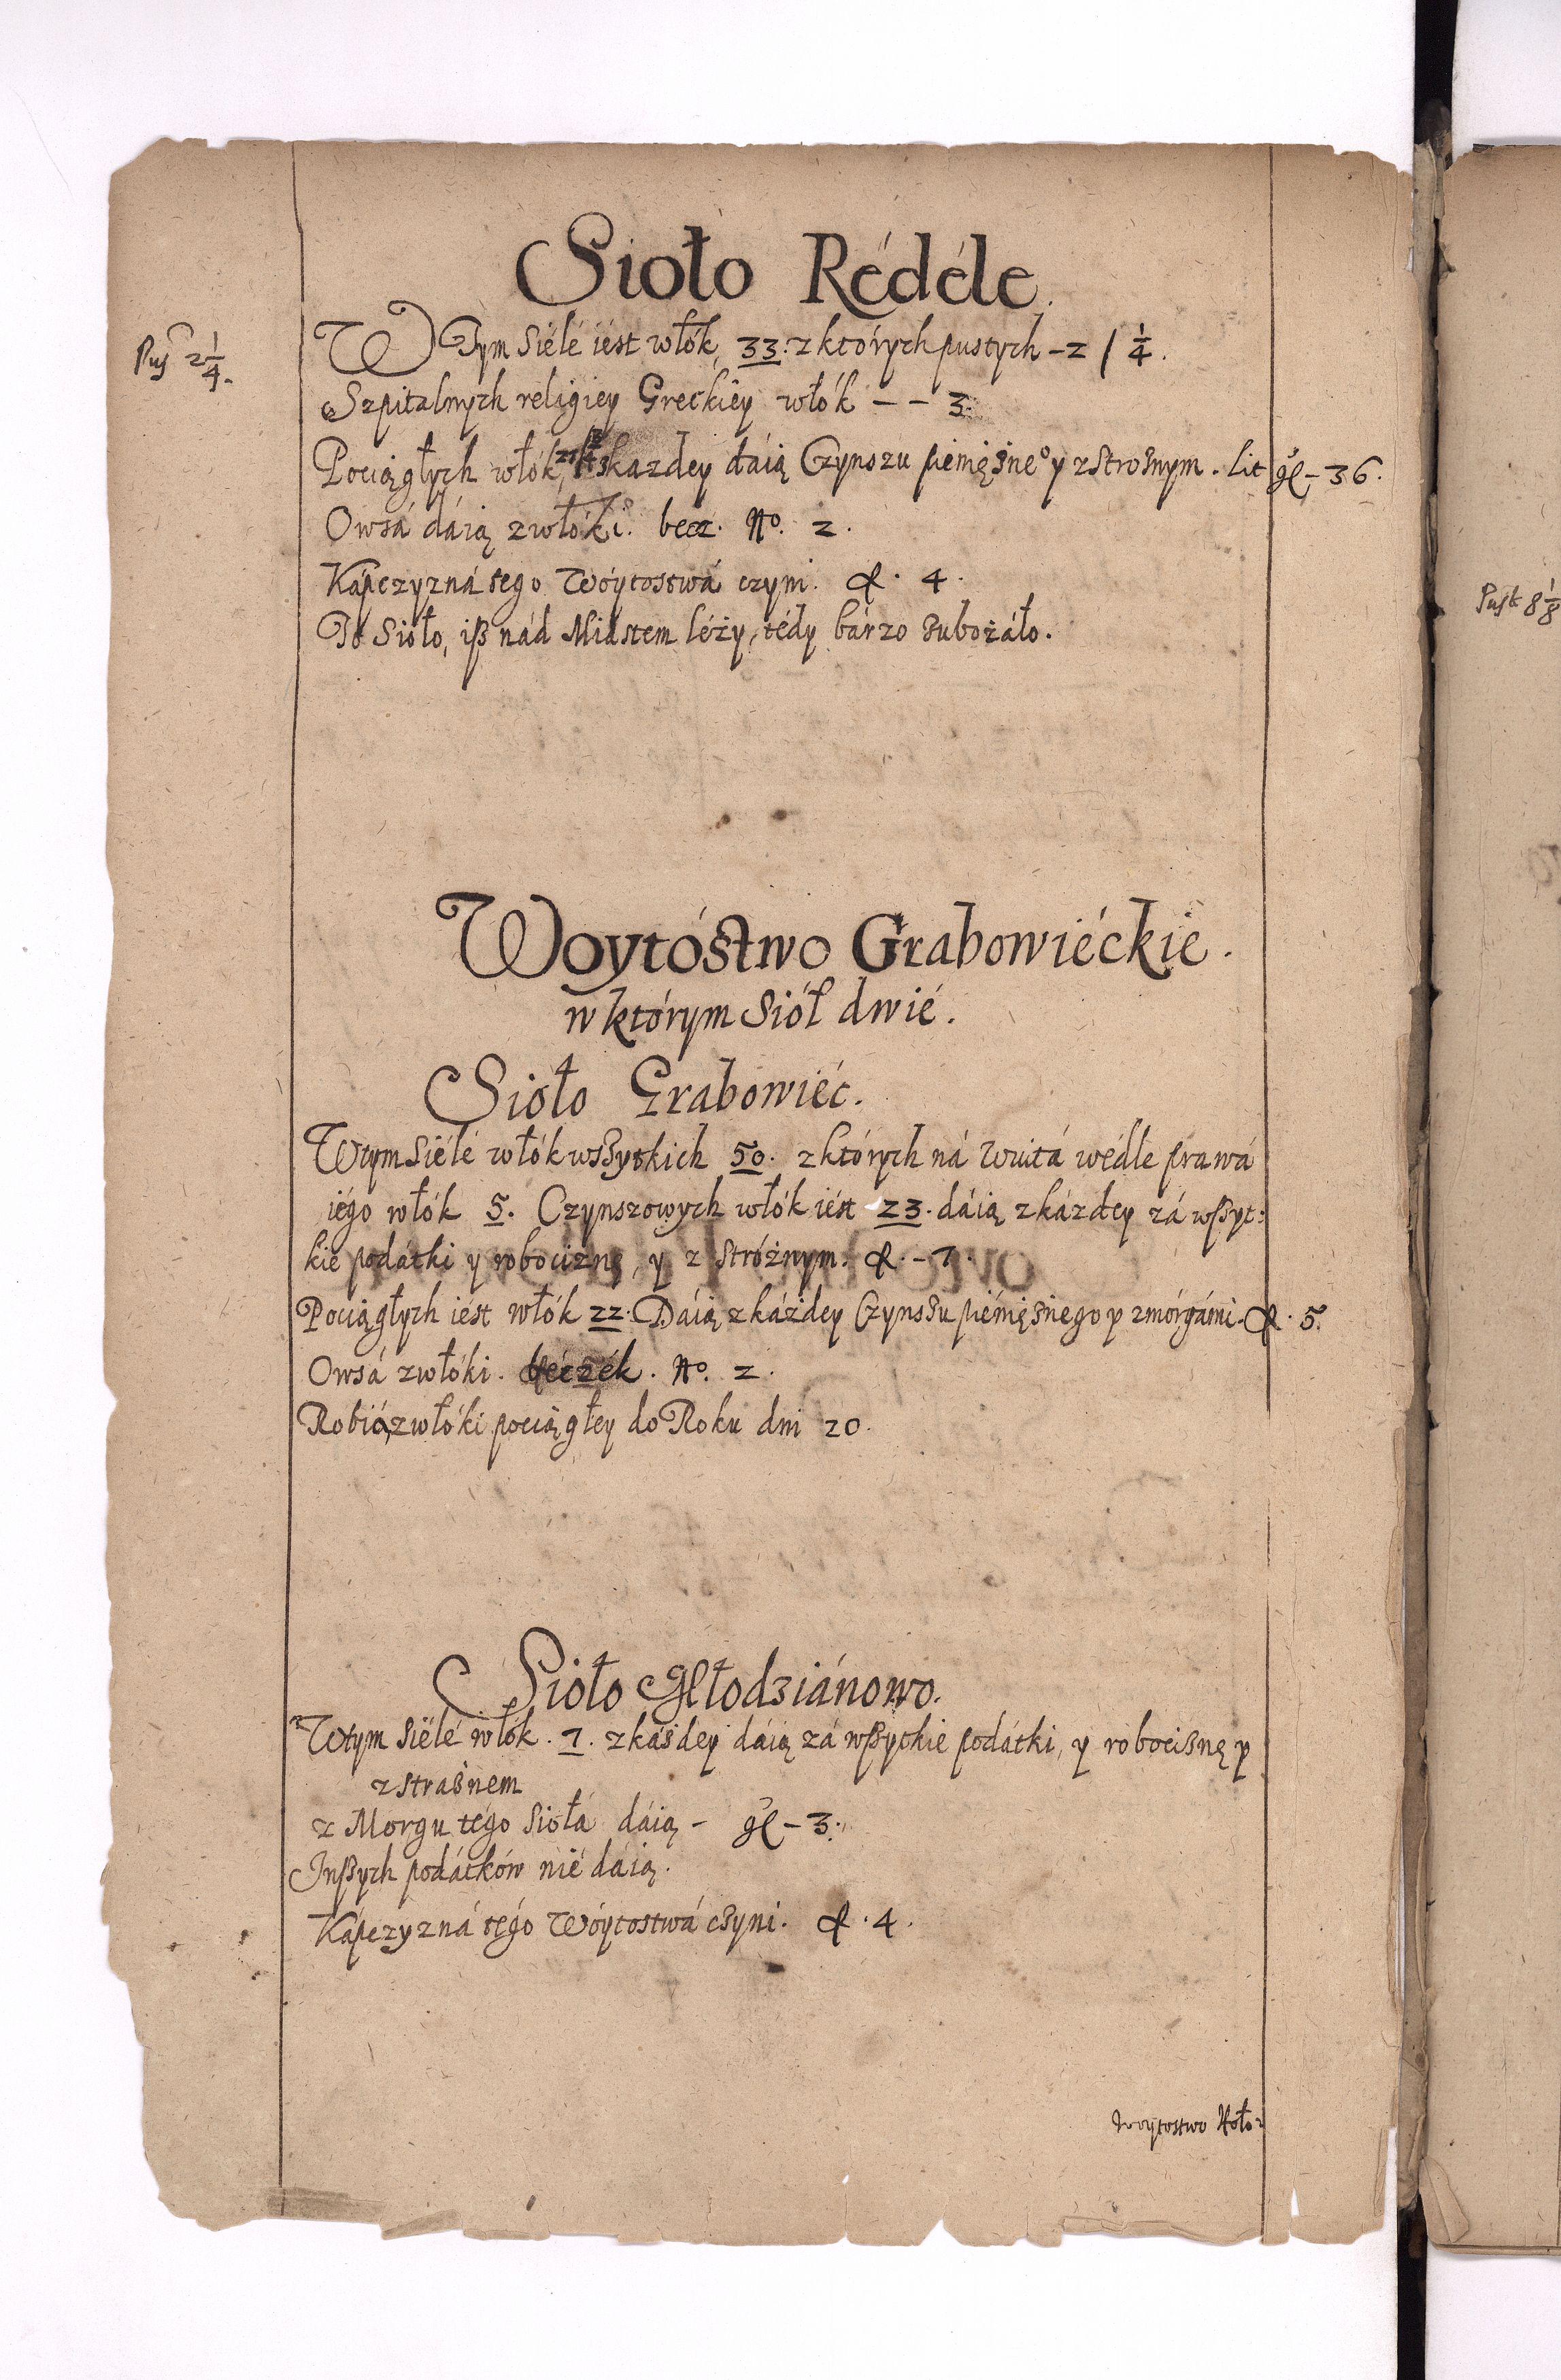 Sioło Rédéle.
Pus 2 1/4.
W Tym Siélé iést włók 33. z których pustych – 2 / 1/4.
Szpitalnych religiey Greckiéy włók – – 3.
Pociągłych włók, skazdey dáią Czynszu pieniężneo y z Strożnym. Lit gl – 36.
Owsá dáią z włóki. becz. No. 2.
Kápczyzná tego Wóytostwá czyni. f. 4.
To Sioło, iß nád Miástem léży, tédy bárzo zubożáło.
Woytóstwo Grabowiéckie.
w którym Siół dwié.
Sioło Grabowiéc.
W tym Siélé włók wszytkich 50. z których ná wuitá wédle prawá
iégo włók 5. Czynszowych włók iést 23. dáią z kázdey zá wßyt:
kie podátki y robociznę, y z Stróżnym. f. – 7.
Pociągłych iést włók 22. Dáią z káżdey Czynszu piéniężnego y z mórgámi. f. 5.
Owsá z włóki. béczék. No. 2.
Robią z włóki pociągłey do Roku dni 20.
Sioło Głodziánowo.
W tym Siélé włók. 7. z káżdey dáią zá wßytkie podátki, y robociznę y
z strażnem
z Morgu tégo Siołá dáią – gl – 3.
Inßych podátków nié dáią.
Kápczyzná tégo Wóytostwá czyni. f. 4.
Woytostwo Hoło:
Pust 8 1/8